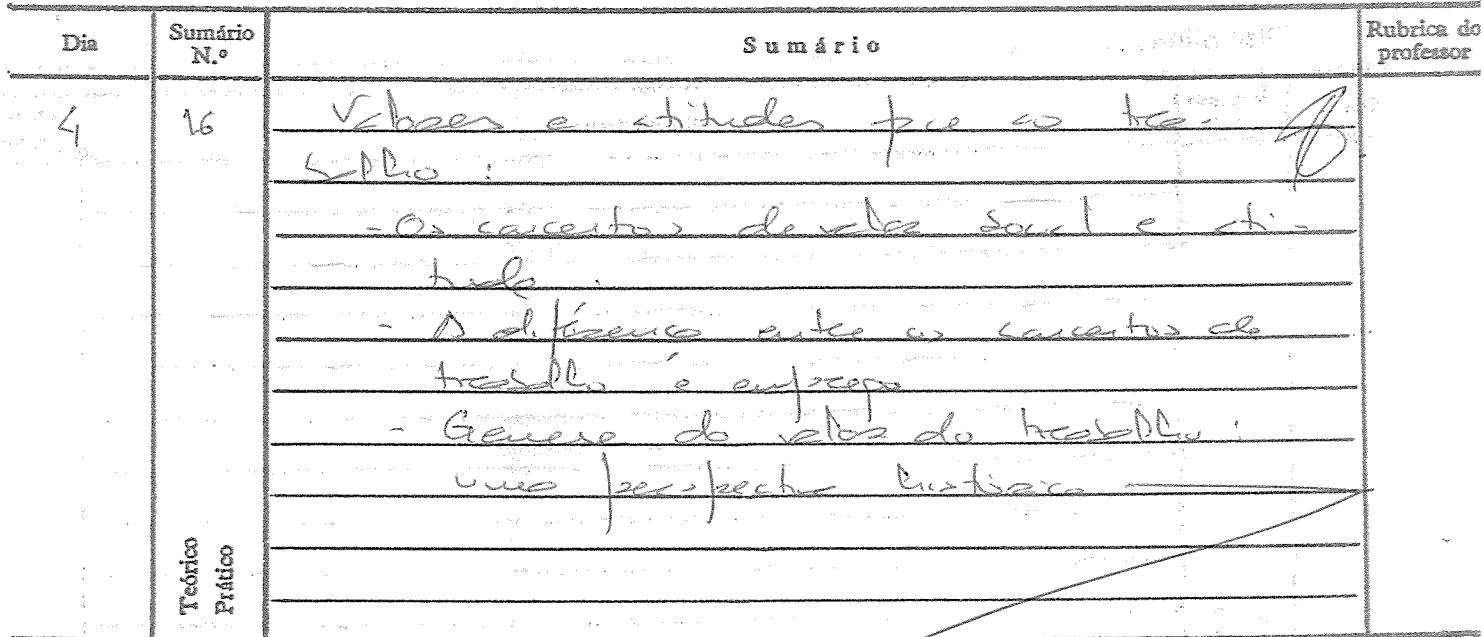 Dia Sumário N.º Sumário Rubrica do professor
4 16 Valores e atitudes face ao tra-
balho :
- Os conceitos de valor social e ati-
tude .
- A diferença entre os conceitos de
trabalho e emprego
- Genese do valor do trabalho :
uma perspectiva histórica
Teórico
Prático